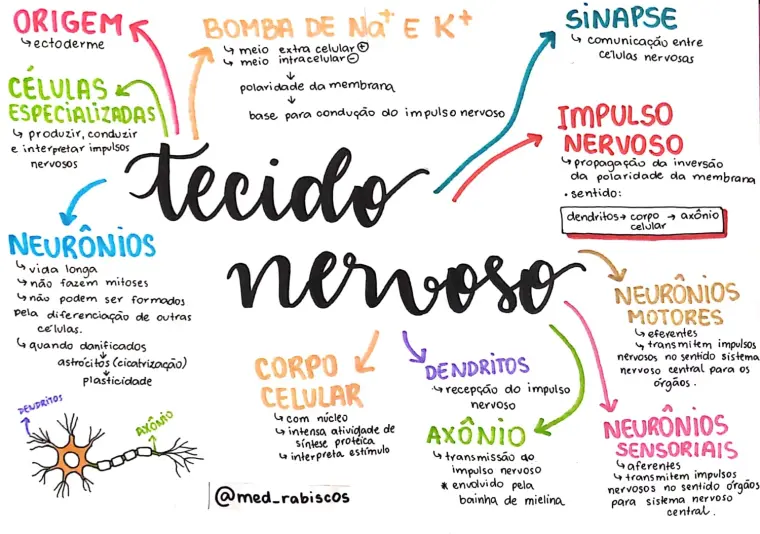 ORIGEM
↳ ectoderme
CÉLULAS
ESPECIALIZADAS
↳ produzir, conduzir
e interpretar impulsos
nervosos
BOMBA DE Na⁺ E K⁺
↳ meio extra celular ⊕
↳ meio intracelular ⊖
↓
polaridade da membrana
↓
base para condução do impulso nervoso
SINAPSE
↳ comunicação entre
células nervosas
IMPULSO
NERVOSO
↳ propagação da inversão
da polaridade da membrana
• sentido:
dendritos → corpo → axônio
celular
tecido
nervoso
NEURÔNIOS
↳ vida longa
↳ não fazem mitoses
↳ não podem ser formados
pela diferenciação de outras
células.
↳ quando danificados
↓
astrócitos (cicatrização)
↓
plasticidade
DENDRITOS
AXÔNIO
CORPO
CELULAR
↳ com núcleo
↳ intensa atividade de
síntese protéica
↳ interpreta estímulo
DENDRITOS
↳ recepção do impulso
nervoso
AXÔNIO
↳ transmissão do
impulso nervoso
* envolvido pela
bainha de mielina
NEURÔNIOS
MOTORES
↳ eferentes
↳ transmitem impulsos
nervosos no sentido sistema
nervoso central para os
órgãos.
NEURÔNIOS
SENSORIAIS
↳ aferentes
↳ transmitem impulsos
nervosos no sentido órgãos
para sistema nervoso
central.
@med_rabiscos